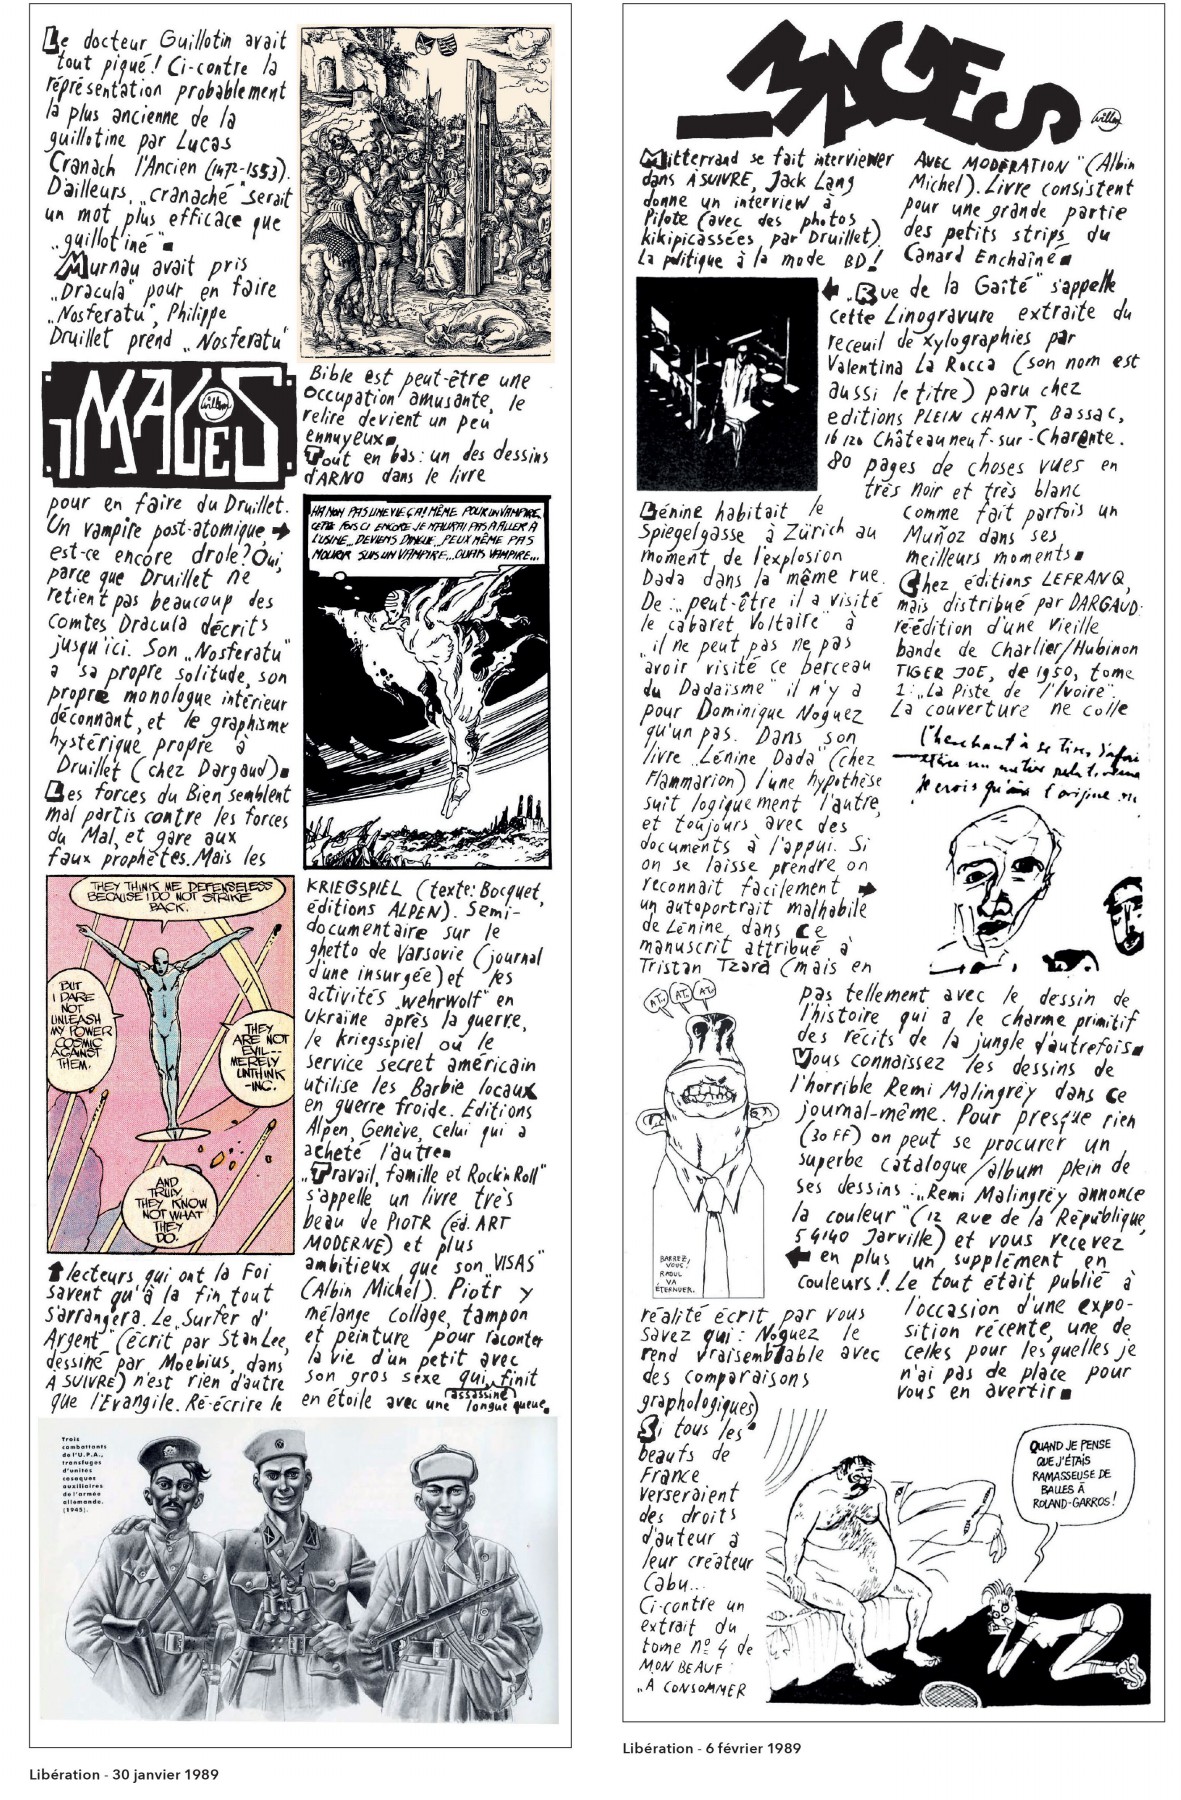 Le docteur Guillotin avait
tout piqué! Ci-contre la
réprésentation probablement
la plus ancienne de la
guillotine par Lucas
Cranach l'Ancien (1472-1553).
D'ailleurs, „cranaché" serait
un mot plus efficace que
„guillotiné"■
Murnau avait pris
„Dracula" pour en faire
„Nosferatu", Philippe
Druillet prend „Nosferatu"
IMAGES
Willem
pour en faire du Druillet.
Un vampire post-atomique →
est-ce encore drole? Oui,
parce que Druillet ne
retient pas beaucoup des
comtes Dracula décrits
jusqu'ici. Son „Nosferatu"
a sa propre solitude, son
propre monologue intérieur
déconnant, et le graphisme
hystérique propre à
Druillet (chez Dargaud)■
Les forces du Bien semblent
mal partis contre les forces
du Mal, et gare aux
faux prophètes. Mais les
THEY THINK ME DEFENSELESS
BECAUSE I DO NOT STRIKE
BACK.
BUT
I DARE
NOT
UNLEASH
MY POWER
COSMIC
AGAINST
THEM.
THEY
ARE NOT
EVIL--
MERELY
UNTHINK
-ING.
AND
TRULY
THEY KNOW
NOT WHAT
THEY
DO.
↑ lecteurs qui ont la Foi
savent qu'à la fin tout
s'arrangera. Le „Surfer d'
Argent" (écrit par Stan Lee,
dessiné par Moebius, dans
A SUIVRE) n'est rien d'autre
que l'Evangile. Ré-écrire le
Bible est peut-être une
occupation amusante, le
relire devient un peu
ennuyeux■
Tout en bas: un des dessins
d'ARNO dans le livre
HA NON PAS UNE VIE ÇA! MÊME POUR UN VAMPIRE,
CETTE FOIS CI ENCORE JE N'AURAI PAS A ALLER A
L'USINE... DEVIENS DINGUE... PEUX MÊME PAS
MOURIR SUIS UN VAMPIRE... OUAIS VAMPIRE...
KRIEGSPIEL (texte: Bocquet,
éditions ALPEN). Semi-
documentaire sur le
ghetto de Varsovie (journal
d'une insurgée) et les
activités „wehrwolf" en
Ukraine après la guerre,
le kriegsspiel où le
service secret américain
utilise les Barbie locaux
en guerre froide. Editions
Alpen, Genève, celui qui a
acheté l'autre■
„Travail, famille et Rock'n Roll"
s'appelle un livre très
beau de PIOTR (éd. ART
MODERNE) et plus
ambitieux que son „VISAS"
(Albin Michel). Piotr y
mélange collage, tampon
et peinture pour raconter
la vie d'un petit avec
son gros sexe qui finit
assassiné
en étoile avec une longue queue■
Trois
combattants
de l'U.P.A.,
transfuges
d'unités
cosaques
auxiliaires
de l'armée
allemande.
(1945).
Libération - 30 janvier 1989
IMAGES
Willem
Mitterrand se fait interviewer
dans À SUIVRE, Jack Lang
donne un interview à
Pilote (avec des photos
kikipicassées par Druillet).
La politique à la mode BD!
Lénine habitait le
Spiegelgasse à Zürich au
moment de l'explosion
Dada dans la même rue.
De „peut-être il a visité
le cabaret Voltaire" à
„il ne peut pas ne pas
avoir visité ce berceau
du Dadaïsme" il n'y a
pour Dominique Noguez
qu'un pas. Dans son
livre „Lénine Dada" (chez
Flammarion) l'une hypothèse
suit logiquement l'autre,
et toujours avec des
documents à l'appui. Si
on se laisse prendre on
reconnait facilement →
un autoportrait malhabile
de Lénine, dans ce
manuscrit attribué à
Tristan Tzara (mais en
AT.. AT.. AT..
BARREZ-
VOUS!
RAOUL
VA
ÉTERNUER.
réalité écrit par vous
savez qui: Noguez le
rend vraisemblable avec
des comparaisons
graphologiques)
Si tous les
beaufs de
France
verseraient
des droits
d'auteur à
leur créateur
Cabu...
Ci-contre un
extrait du
tome nº 4 de
MON BEAUF:
„A CONSOMMER
AVEC MODERATION" (Albin
Michel). Livre consistent
pour une grande partie
des petits strips du
Canard Enchaîné■
← „Rue de la Gaîté" s'appelle
cette Linogravure extraite du
receuil de xylographies par
Valentina La Rocca (son nom est
aussi le titre) paru chez
editions PLEIN CHANT, Bassac,
16120 Châteauneuf-sur-Charente.
80 pages de choses vues en
très noir et très blanc
comme fait parfois un
Muñoz dans ses
meilleurs moments■
Chez éditions LEFRANQ,
mais distribué par DARGAUD:
réédition d'une vieille
bande de Charlier/Hubinon
TIGER JOE, de 1950, tome
1: „La Piste de l'Ivoire".
La couverture ne colle
Je crois qu'on l'origine
pas tellement avec le dessin de
l'histoire qui a le charme primitif
des récits de la jungle d'autrefois■
Vous connaissez les dessins de
l'horrible Remi Malingrëy dans ce
journal-même. Pour presque rien
(30 FF) on peut se procurer un
superbe catalogue/album plein de
ses dessins: „Remi Malingrëy annonce
la couleur" (12 Rue de la République,
54140 Jarville) et vous recevez
← en plus un supplément en
couleurs!. Le tout était publié à
l'occasion d'une expo-
sition récente, une de
celles pour lesquelles je
n'ai pas de place pour
vous en avertir■
QUAND JE PENSE
QUE J'ÉTAIS
RAMASSEUSE DE
BALLES À
ROLAND-GARROS!
Libération - 6 février 1989